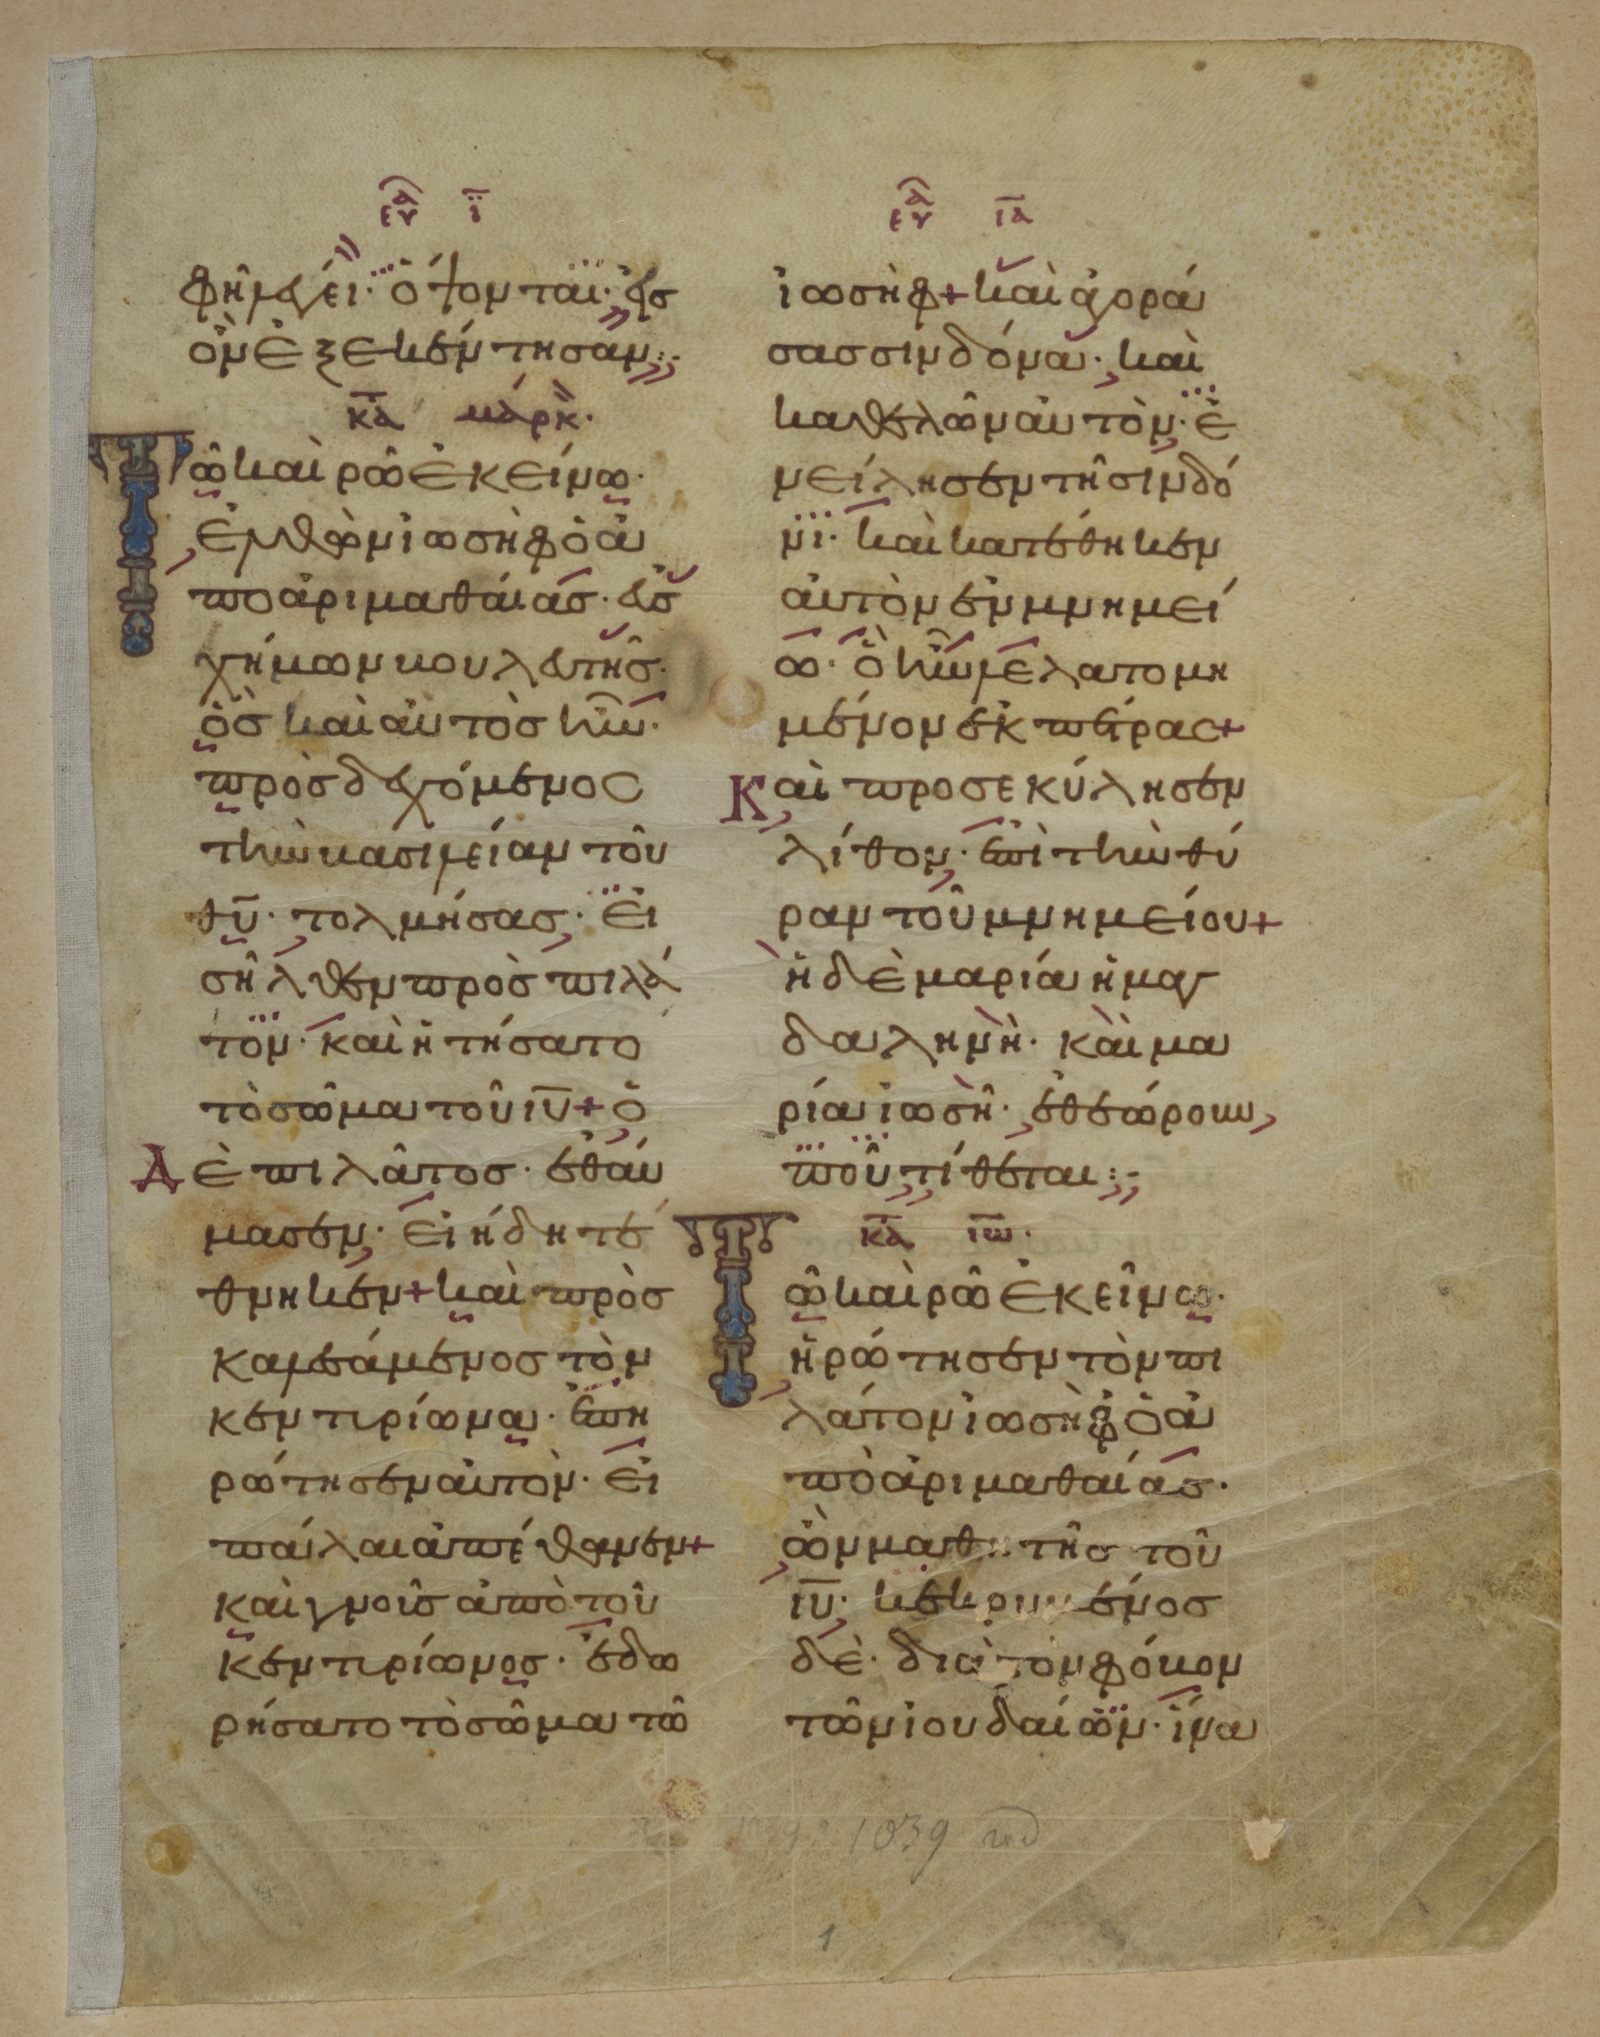 ευα ϊ
φὴ λέγει· ὄψονται· εἰς
ὃν ἐξεκέντησαν:-
κα μάρκ·
Τῶ καιρῶ ἐκείνω·
ἐλθὼν ἰωσὴφ ὁ ἀ
πο ἀριμαθαίας· εὐσ
χήμων βουλευτής·
ὃς καὶ αὐτὸς ἦν·
προσδεχόμενος
τὴν βασιλείαν τοῦ
θυ· τολμήσας· εἰ
σῆλθεν πρὸς πιλά
τον· καὶ ἠτήσατο
τὸ σῶμα τοῦ ιυ + ὁ
Δὲ πιλάτος· ἐθαύ
μασεν· εἰ ἤδη τέ
θνηκεν + καὶ προσ
καλεσάμενος τὸν
κεντυρίωνα· ἐπη
ρώτησεν αὐτὸν· εἰ
πάλαι ἀπέθανεν +
καὶ γνοὺς ἀπὸ τοῦ
κεντυρίωνος· ἐδω
ρήσατο τὸ σῶμα τῶ
ευα ια
ἰωσὴφ + καὶ ἀγορά
σας σινδόνα· καὶ
καθελὼν αὐτὸν· ἐ
νείλησεν τῆ σινδό
νι· καὶ κατέθηκεν
αὐτὸν ἐν μνημεί
ω· ὃ ἦν λελατομη
μένον ἐκ πέτρας +
Καὶ προσεκύλησεν
λίθον· ἐπὶ τὴν θύ
ραν τοῦ μνημείου +
ἡ δὲ μαρία ἡ μαγ
δαληνὴ· καὶ μα
ρία ἰωσῆ· ἐθεώρουν
ποῦ τίθεται:-
κα ιω·
Τῶ καιρῶ ἐκεῖνω·
ἠρώτησεν τὸν πι
λάτον ἰωσὴφ ὁ ἀ
πὸ ἀριμαθαίας·
ὢν μαθητὴς τοῦ
ιυ· κεκρυμμένος
δὲ· διὰ τὸν φόβον
τῶν ἰουδαίων· ἵνα
1039
1